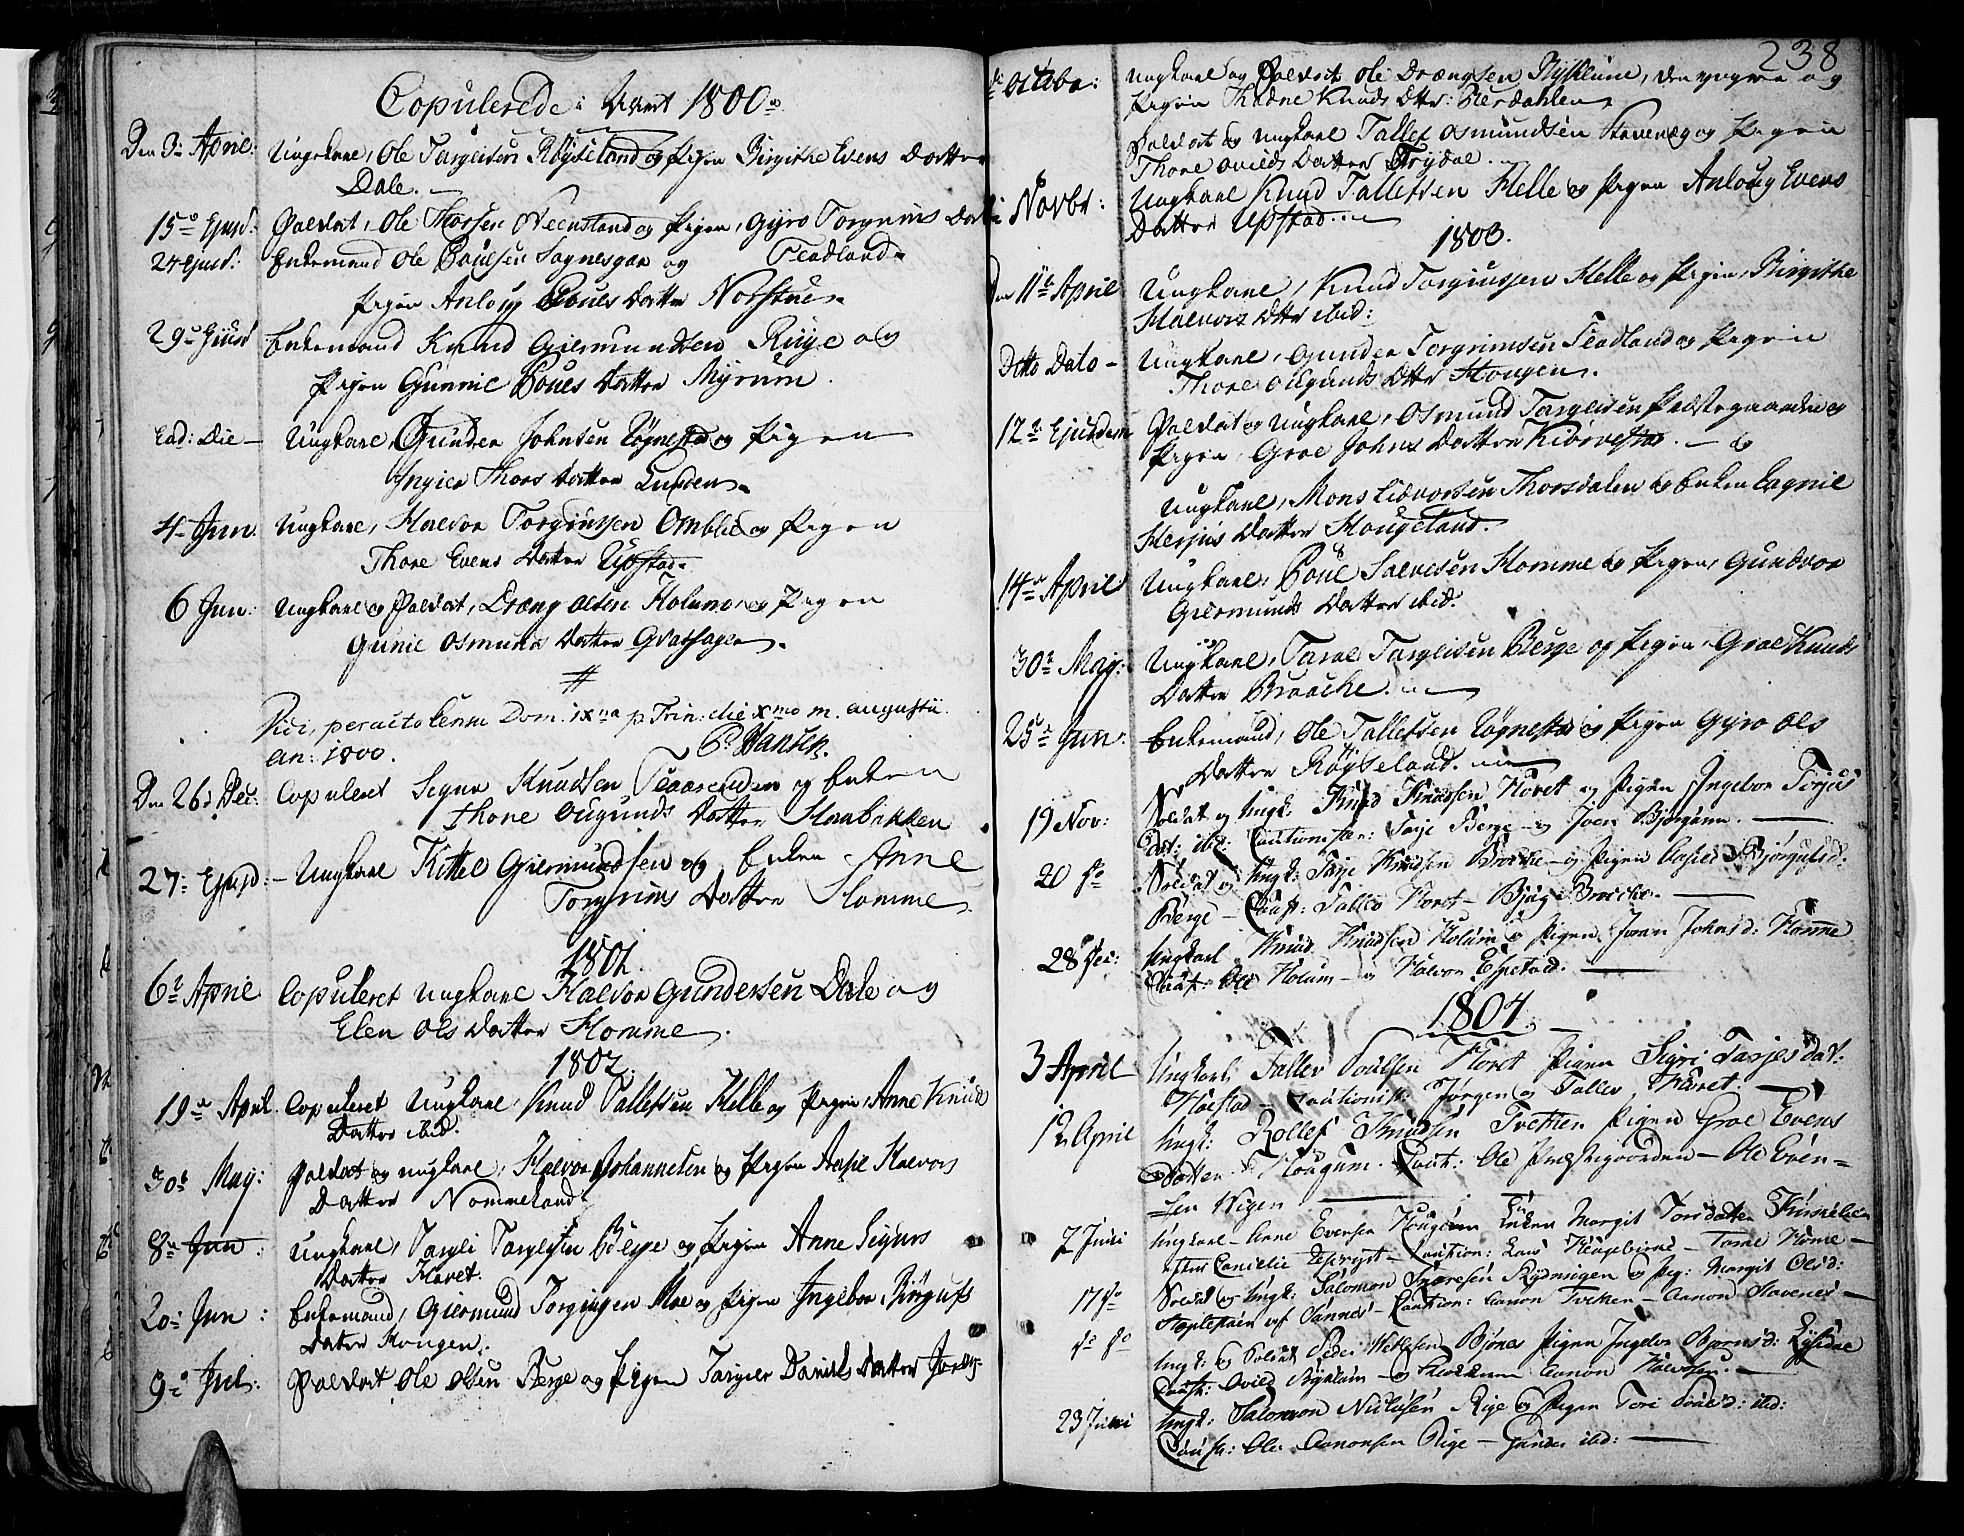 Copulerede i Aaret 1800.
Den 3 April: Ungekarl, Ole Targeisen Røyseland og Pigen Birgithe Evens Datter
Dale.
15 Ejusd. Soldat, Ole Thorsen Veenstand og Pigen, Gyro Torgrims Datt
24 Ejusd: Enkemand Ole Povelsen Sognesgar og Fladland
Pigen Anloug Povels Datter Norstue.
29 Ejusd Enkemand Knud Giermundsen Ryge og
Pigen Gunnie Povels Datter Myrum.
Ead: Die - Ungkarl, Gunder Johnsen Rygnestad og Pigen
Ingier Thors Datter Lunden.
4 Jun. Ungkarl, Halvor Torgiussen Omblie og Pigen
Thore Evens Datter Upstad.
6 Jun: Ungkarl og Soldat, Dræng Olsen Holum og Pigen
Gunie Osmunds Datter Qvarhagen.
#
Vidi, peracto Dom: IX p Trin: die Xmo m. augusti
an: 1800. P Hansen.
Den 26 Dec: Copuleret Sigur Knudsen og Enken
Thore Ougunds Datter Haabakken
27 Ejusd: - Ungkarl Kittel Giermundsen og Enken Anne
Torgrims Datter Homme
1801.
6 April Copuleret Ungkarl Halvor Gundersen Dale og
Elen Ols Datter Homme.
1802.
19 April Copuleret Ungkarl, Knud Tallefsen Helle og Pigen, Anne Knuds
Datter ibid.
30 May: Soldat og Ungkarl, Halvor Johannesen og Pigen Aasie Halvors
Datter Nommeland
8 Jun: Ungkarl, Targei Targeisen Berge og Pigen Anne Sigurs
Datter Havet.
20 Jun: Enkemand, Giermund Torgiusen Moe og Pigen Ingebor Biørgufs
Datter Hougen.
9 Jul: Soldat Ole Olsen Berge og Pigen Targier Daniels Datter
238
October: Ungkarl og Soldat Ole Drængsen Rysklune, den yngre og
Pigen Thadne Knuds Dttr:
Soldat og Ungkarl Tallef Osmundsen Stavenæs og Pigen
Thore Avids Datter Trydal.
Novbr: Ungkarl Knud Tallefsen Helle og Pigen Anloug Evens
Datter Upstad.
1803.
Den 11 April Ungkarl, Knud Torgiussen Helle og Pigen, Birgithe
Halvors Dttr ibid:
Ditto Dato - Ungkarl, Gunder Torgrimsen Fladland og Pigen
Thore Ougunds Dttr Hougen.
12 Ejusdem Soldat og Ungkarl, Osmund Targeisen Præstegaarden og
Pigen, Groe Johns Datter
Ungkarl, Mons Lidvorsen Thorsdalen og Enken Lagnie
Herjus Datter Hougeland.
14 April Ungkarl, Povel Salvesen Homme og Pigen, Gundvor
Giermunds Datter ibid.
30 May: Ungkarl, Taral Targeisen Berge og Pigen, Groe Knuds
Datter Braache.
25 Jun: Enkemand, Ole Tallefsen Rygnestad og Pigen Gyro Ols
Datter Røysseland.
19 Nov: Soldat og Ungk: Knud Knudsen Horet og Pigen Ingebor Torjus
Dat: ibid: Cautionister: Tarje Berge og Sven Biørgum.
20 do Soldat og Ungk: Tarje Knudsen Broche og Pigen Aasild Biørgufsd:
Berge - Caut: Tallev Horet - Biug Broche.
28 Dec: Ungkarl Knud Knudsen Holum og Pigen Joran Johnsd: Homme
Caut: Ole Holum - og Halvor Espetad.
1804.
3 April Ungkarl Tallev Povelsen Horet Pigen Sigri Tarjesdat:
Harstad - Cautionist: Jørgen og Tallev Horet.
12 April Ungk: Rollef Knudsen Tveten Pigen Groe Evens
Datter Hougum. Caut: Ole Præstegaarden - Ole Even-
sen Wigen
7 Juni Ungkarl Anne Evensen Hougum Enken Margit Torsdatter
efter Danielle - Caution: Lars - Taral Home -
17 do Soldat og Ungk: Salomon Rydningen og Pig: Margit Olsd:
af Sannes - Caution: Aanon Tveten - Aanon Stavenes -
do do Ungk: og Soldat Peder Bjørnes Pigen Ingebor Biørnsd:
Caut: Avild Byklum - og Aanon Halvorsen.
23 Juni Ungk: Salomon Nielsen Rige og Pigen Tori Povelsd: ibid:
Caut: Ole Aanonsen Rige - Gunder ibid: